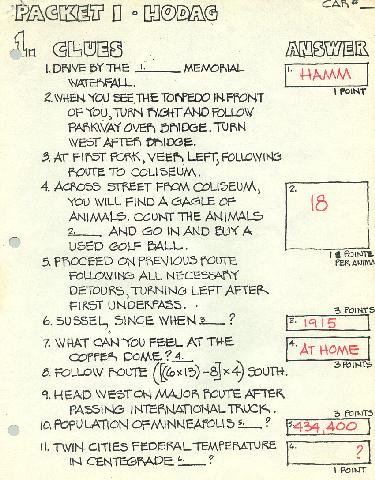 PACKET I · HODAG
CAR #
1.. CLUES ANSWER
1. DRIVE BY THE 1. MEMORIAL
WATERFALL.
1. HAMM
1 POINT
2. WHEN YOU SEE THE TORPEDO IN FRONT
OF YOU, TURN RIGHT AND FOLLOW
PARKWAY OVER BRIDGE. TURN
WEST AFTER BRIDGE.
3. AT FIRST FORK, VEER LEFT, FOLLOWING
ROUTE TO COLISEUM.
4. ACROSS STREET FROM COLISEUM,
YOU WILL FIND A GAGLE OF
ANIMALS. COUNT THE ANIMALS
2. AND GO IN AND BUY A
USED GOLF BALL.
2. 18
POINTS
PER ANIMA
5. PROCEED ON PREVIOUS ROUTE
FOLLOWING ALL NECESSARY
DETOURS, TURNING LEFT AFTER
FIRST UNDERPASS.
3 POINTS
6. SUSSEL, SINCE WHEN 3. ?
3. 1915
7. WHAT CAN YOU FEEL AT THE
COPPER DOME? 4.
4. AT HOME
3 POINTS
8. FOLLOW ROUTE ([(6×13)-8]×4) SOUTH.
9. HEAD WEST ON MAJOR ROUTE AFTER
PASSING INTERNATIONAL TRUCK.
3 POINTS
10. POPULATION OF MINNEAPOLIS 5. ?
5. 434,400
11. TWIN CITIES FEDERAL TEMPERATURE
IN CENTEGRADE 6. ?
6. ?
3 POINTS